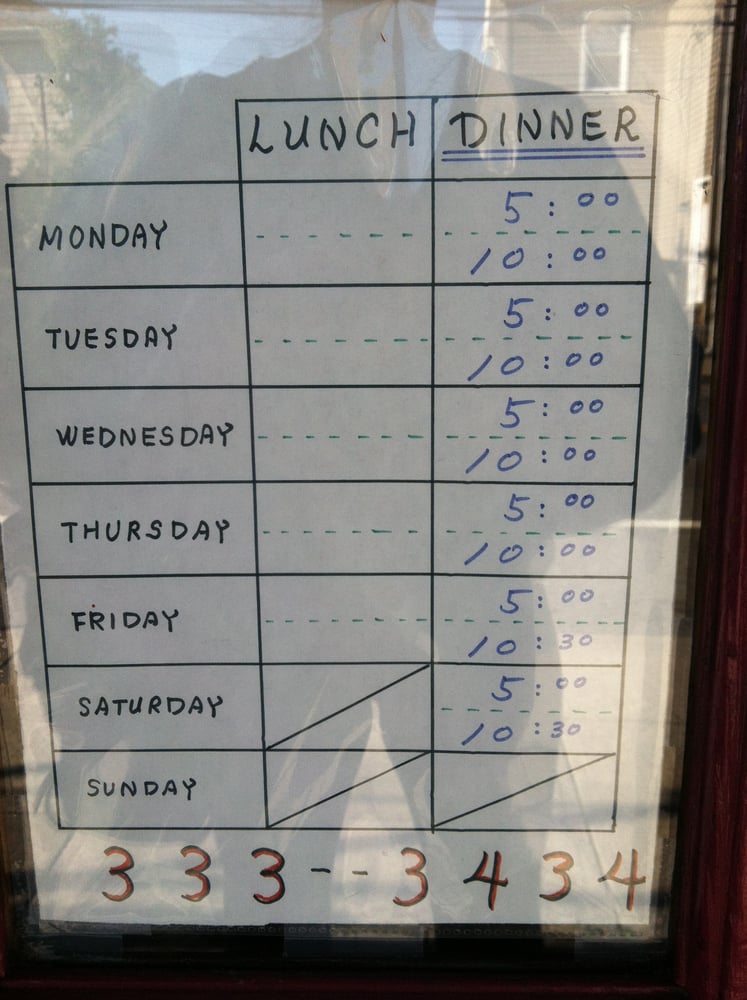 LUNCH DINNER
MONDAY 5:00
10:00
TUESDAY 5:00
10:00
WEDNESDAY 5:00
10:00
THURSDAY 5:00
10:00
FRIDAY 5:00
10:30
SATURDAY 5:00
10:30
SUNDAY
333--3434